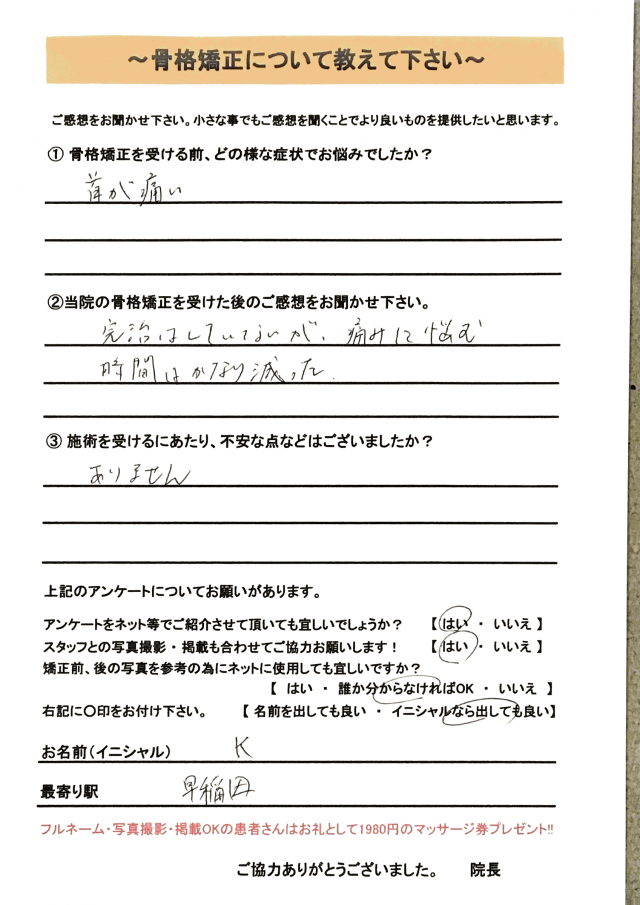 ～骨格矯正について教えて下さい～
ご感想をお聞かせ下さい。小さな事でもご感想を聞くことでより良いものを提供したいと思います。
① 骨格矯正を受ける前、どの様な症状でお悩みでしたか？
首が痛い
②当院の骨格矯正を受けた後のご感想をお聞かせ下さい。
完治はしていないが、痛みに悩む
時間はかなり減った.
③ 施術を受けるにあたり、不安な点などはございましたか？
ありません
上記のアンケートについてお願いがあります。
アンケートをネット等でご紹介させて頂いても宜しいでしょうか？ 【 はい ・ いいえ 】
スタッフとの写真撮影・掲載も合わせてご協力お願いします！ 【 はい ・ いいえ 】
矯正前、後の写真を参考の為にネットに使用しても宜しいですか？
【 はい ・ 誰か分からなければOK ・ いいえ 】
右記に〇印をお付け下さい。 【 名前を出しても良い ・ イニシャルなら出しても良い】
お名前（イニシャル） K
最寄り駅 早稲田
フルネーム・写真撮影・掲載OKの患者さんはお礼として1980円のマッサージ券プレゼント!!
ご協力ありがとうございました。 院長